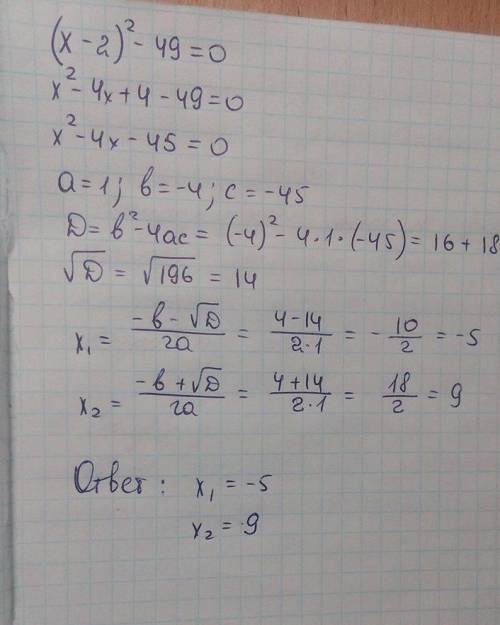 (x - 2)² - 49 = 0
x² - 4x + 4 - 49 = 0
x² - 4x - 45 = 0
a = 1; в = -4; c = -45
D = в² - 4ac = (-4)² - 4·1·(-45) = 16 + 18
√D = √196 = 14
x₁ = (-в - √D)/2a = (4 - 14)/2·1 = - 10/2 = -5
x₂ = (-в + √D)/2a = (4 + 14)/2·1 = 18/2 = 9
Ответ: x₁ = -5
x₂ = 9